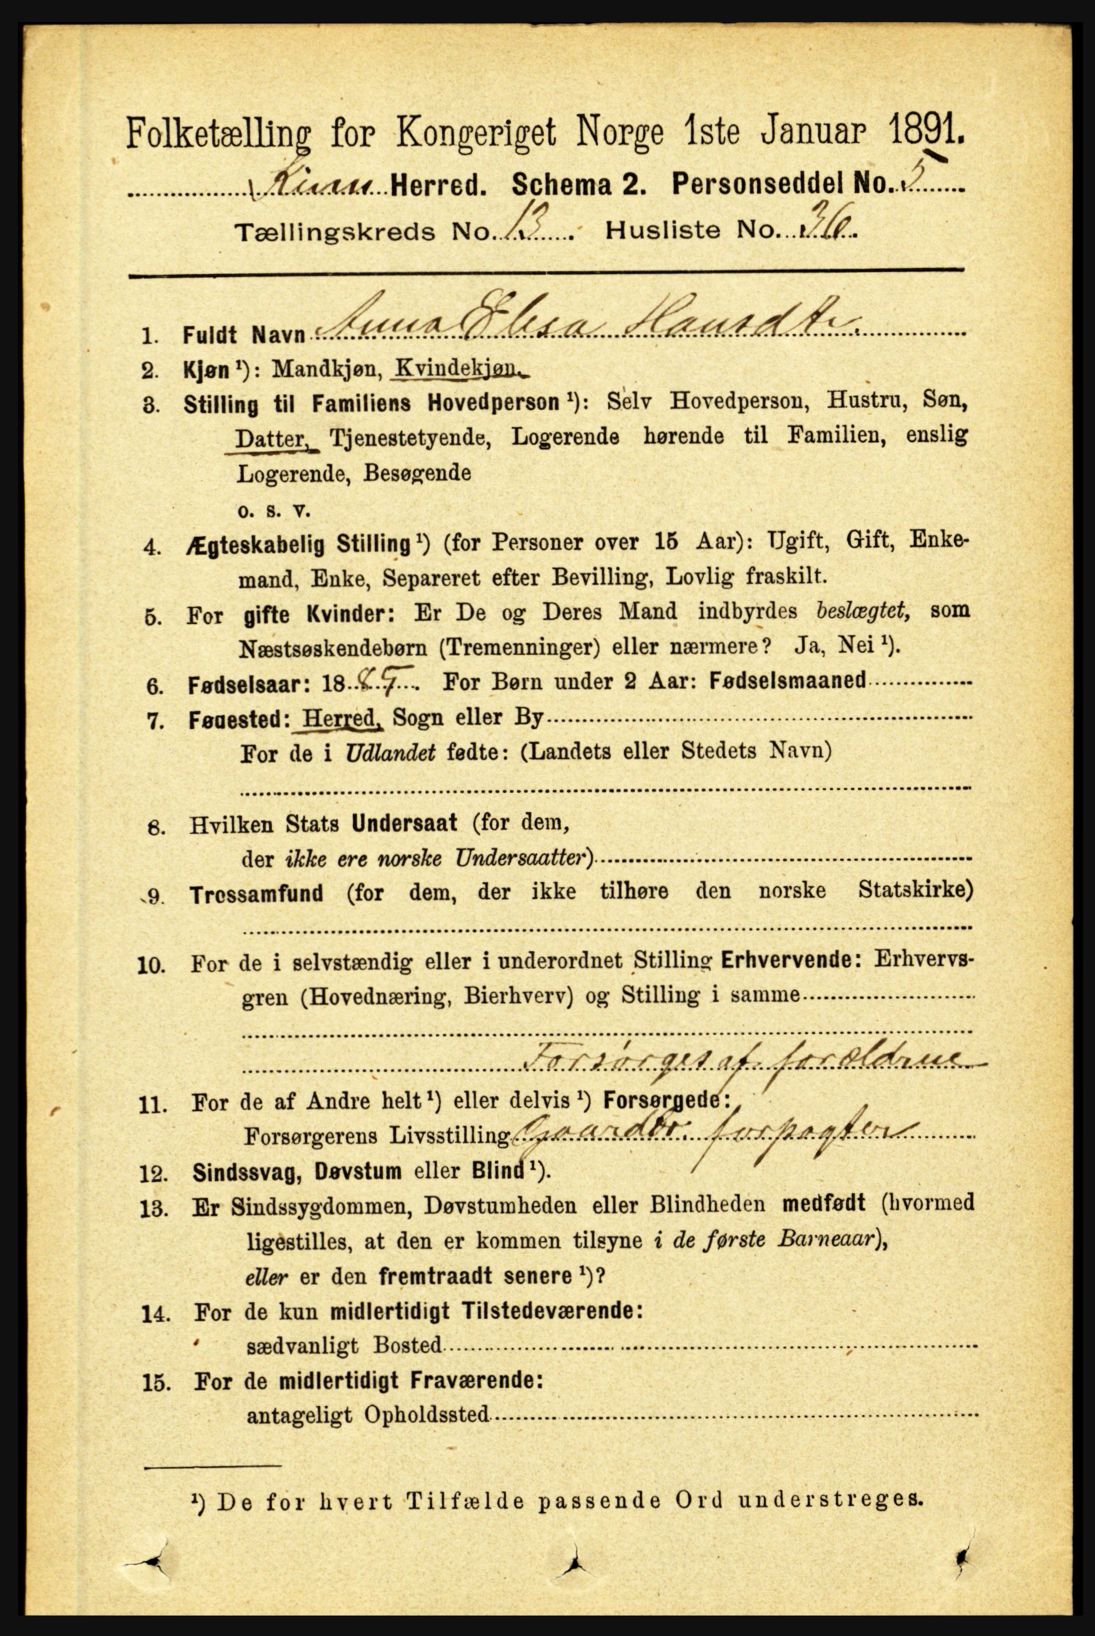 Folketælling for Kongeriget Norge 1ste Januar 1891.
Kinn Herred. Schema 2. Personseddel No. 5
Tællingskreds No. 13. Husliste No. 36.
1. Fuldt Navn Anna Elisa Hansdtr.
2. Kjøn ¹): Mandkjøn, Kvindekjøn.
3. Stilling til Familiens Hovedperson ¹): Selv Hovedperson, Hustru, Søn,
Datter, Tjenestetyende, Logerende hørende til Familien, enslig
Logerende, Besøgende
o. s. v.
4. Ægteskabelig Stilling ¹) (for Personer over 15 Aar): Ugift, Gift, Enke-
mand, Enke, Separeret efter Bevilling, Lovlig fraskilt.
5. For gifte Kvinder: Er De og Deres Mand indbyrdes beslægtet, som
Næstsøskendebørn (Tremenninger) eller nærmere? Ja, Nei ¹).
6. Fødselsaar: 18 85. For Børn under 2 Aar: Fødselsmaaned
7. Føuested: Herred, Sogn eller By
For de i Udlandet fødte: (Landets eller Stedets Navn)
8. Hvilken Stats Undersaat (for dem,
der ikke ere norske Undersaatter)
9. Trossamfund (for dem, der ikke tilhøre den norske Statskirke)
10. For de i selvstændig eller i underordnet Stilling Erhvervende: Erhvervs-
gren (Hovednæring, Bierhverv) og Stilling i samme
Forsørges af forældrene
11. For de af Andre helt ¹) eller delvis ¹) Forsørgede:
Forsørgerens Livsstilling Gaardbr. forpagter
12. Sindssvag, Døvstum eller Blind ¹).
13. Er Sindssygdommen, Døvstumheden eller Blindheden medfødt (hvormed
ligestilles, at den er kommen tilsyne i de første Barneaar),
eller er den fremtraadt senere ¹)?
14. For de kun midlertidigt Tilstedeværende:
sædvanligt Bosted
15. For de midlertidigt Fraværende:
antageligt Opholdssted
¹) De for hvert Tilfælde passende Ord understreges.